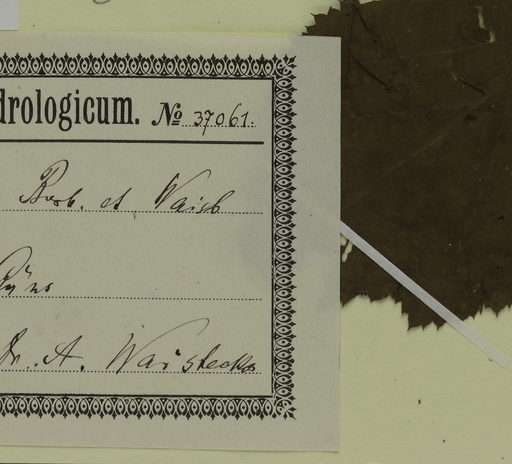 drologicum. № 37061.
Borb. et Waisb
Dr. A. Waisbecker